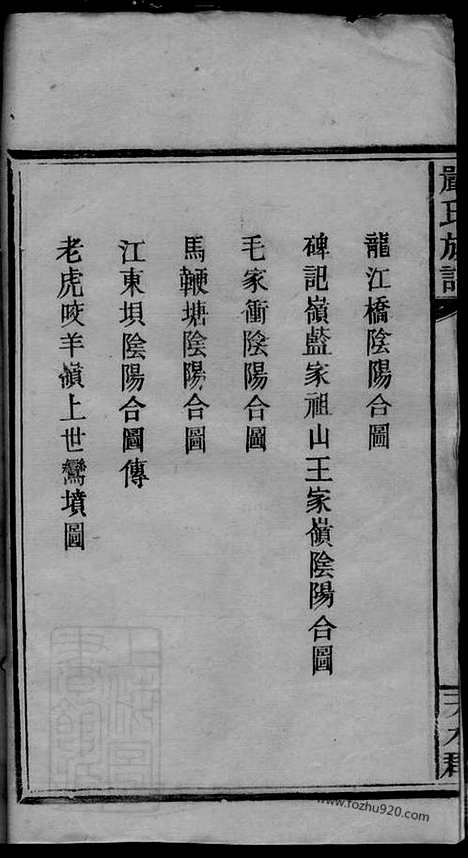 嚴氏族譜
龍江橋陰陽合圖
碑記嶺藍家祖山王家嶺陰陽合圖
毛家衝陰陽合圖
馬鞭塘陰陽合圖
江東坝陰陽合圖傳
老虎咬羊嶺上世鸞墳圖
天水郡
www.fozhu920.com